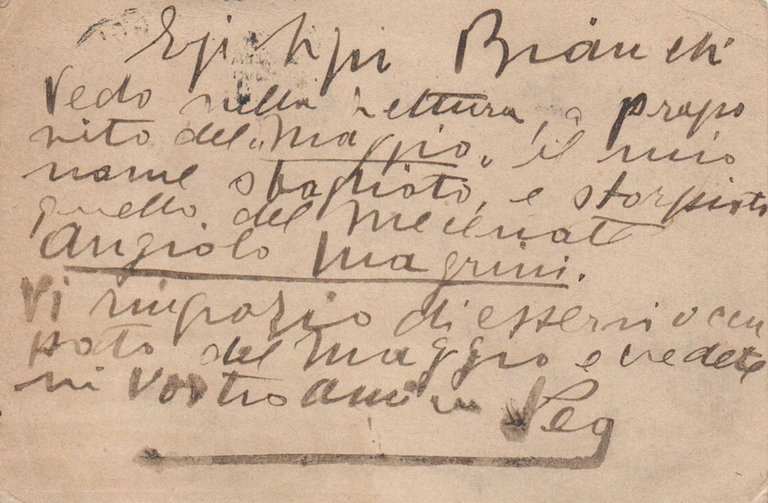 Bianchi
Vedo nella Lettura, a propo
sito del "Maggio" il mio
nome sbagliato, e storpiato
quello del Mecenate
Angiolo Magrini.
Vi ringrazio di esservi occu
pato del Maggio e vedete
mi vostro amico